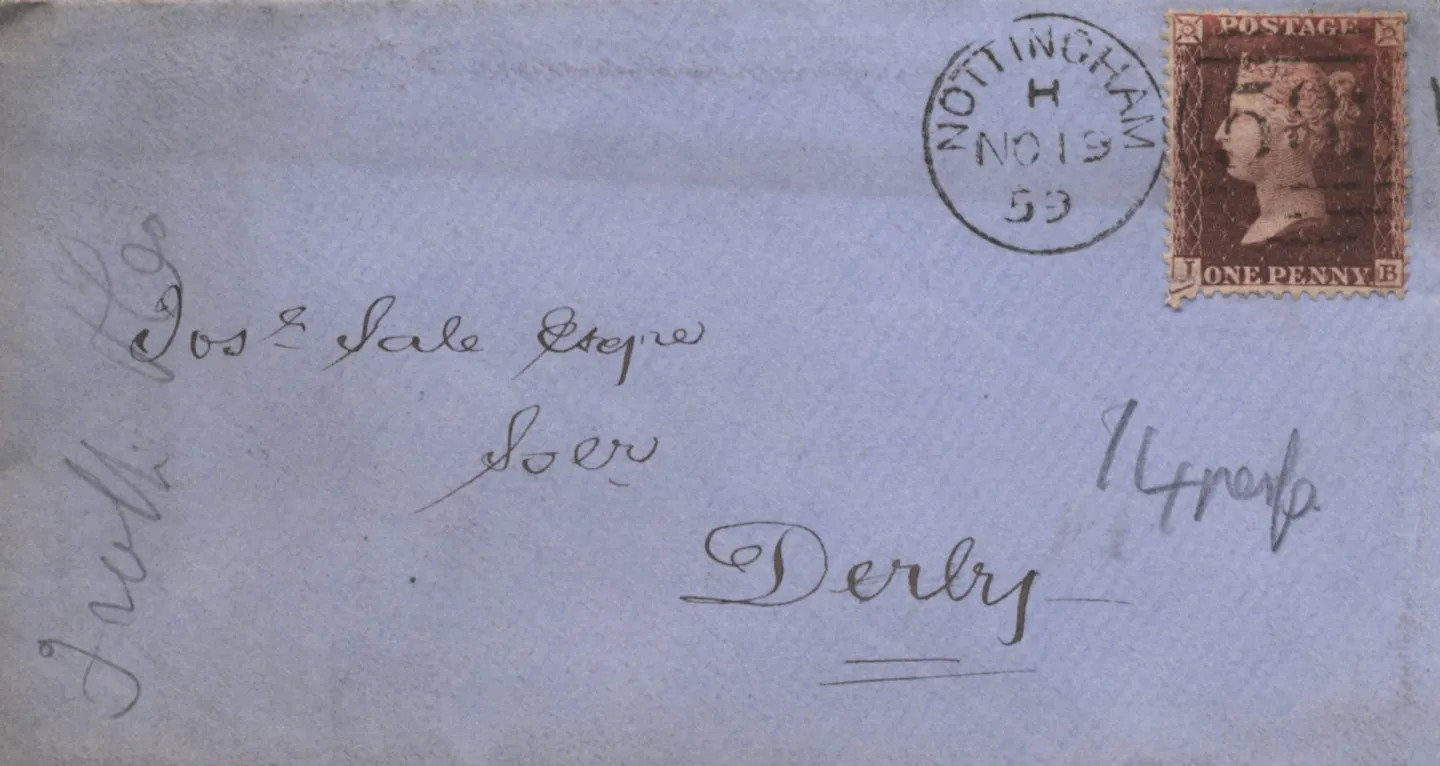 POSTAGE
NOTTINGHAM
H
NO 19
59
583
J ONE PENNY B
Josh Sale Esqre
Sor
Derby
14 perf